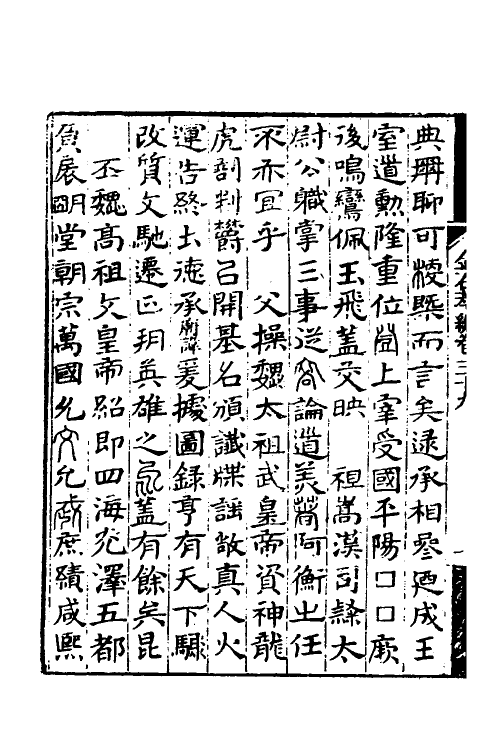 典冊聊可稜槩而言矣逮承相參廼成王
室道勳隆重位登上宰受國平陽囗囗厥
後鳴鸞佩玉飛蓋交映　祖嵩漢司隸太
尉公職掌三事從容論道美著阿衡之任
不亦宜乎　父操魏太祖武皇帝資神龍
虎剖判欝以開基名頒讖牒謡啟真人火
運告終土德承廟諱爰據圖錄亨有天下驟
改質文馳遷正朔英雄之氣蓋有餘矣昆
丕魏高祖文皇帝紹即四海光澤五都
負扆朙堂朝宗萬國允文允武庶績咸熙
金石萃編卷三十九